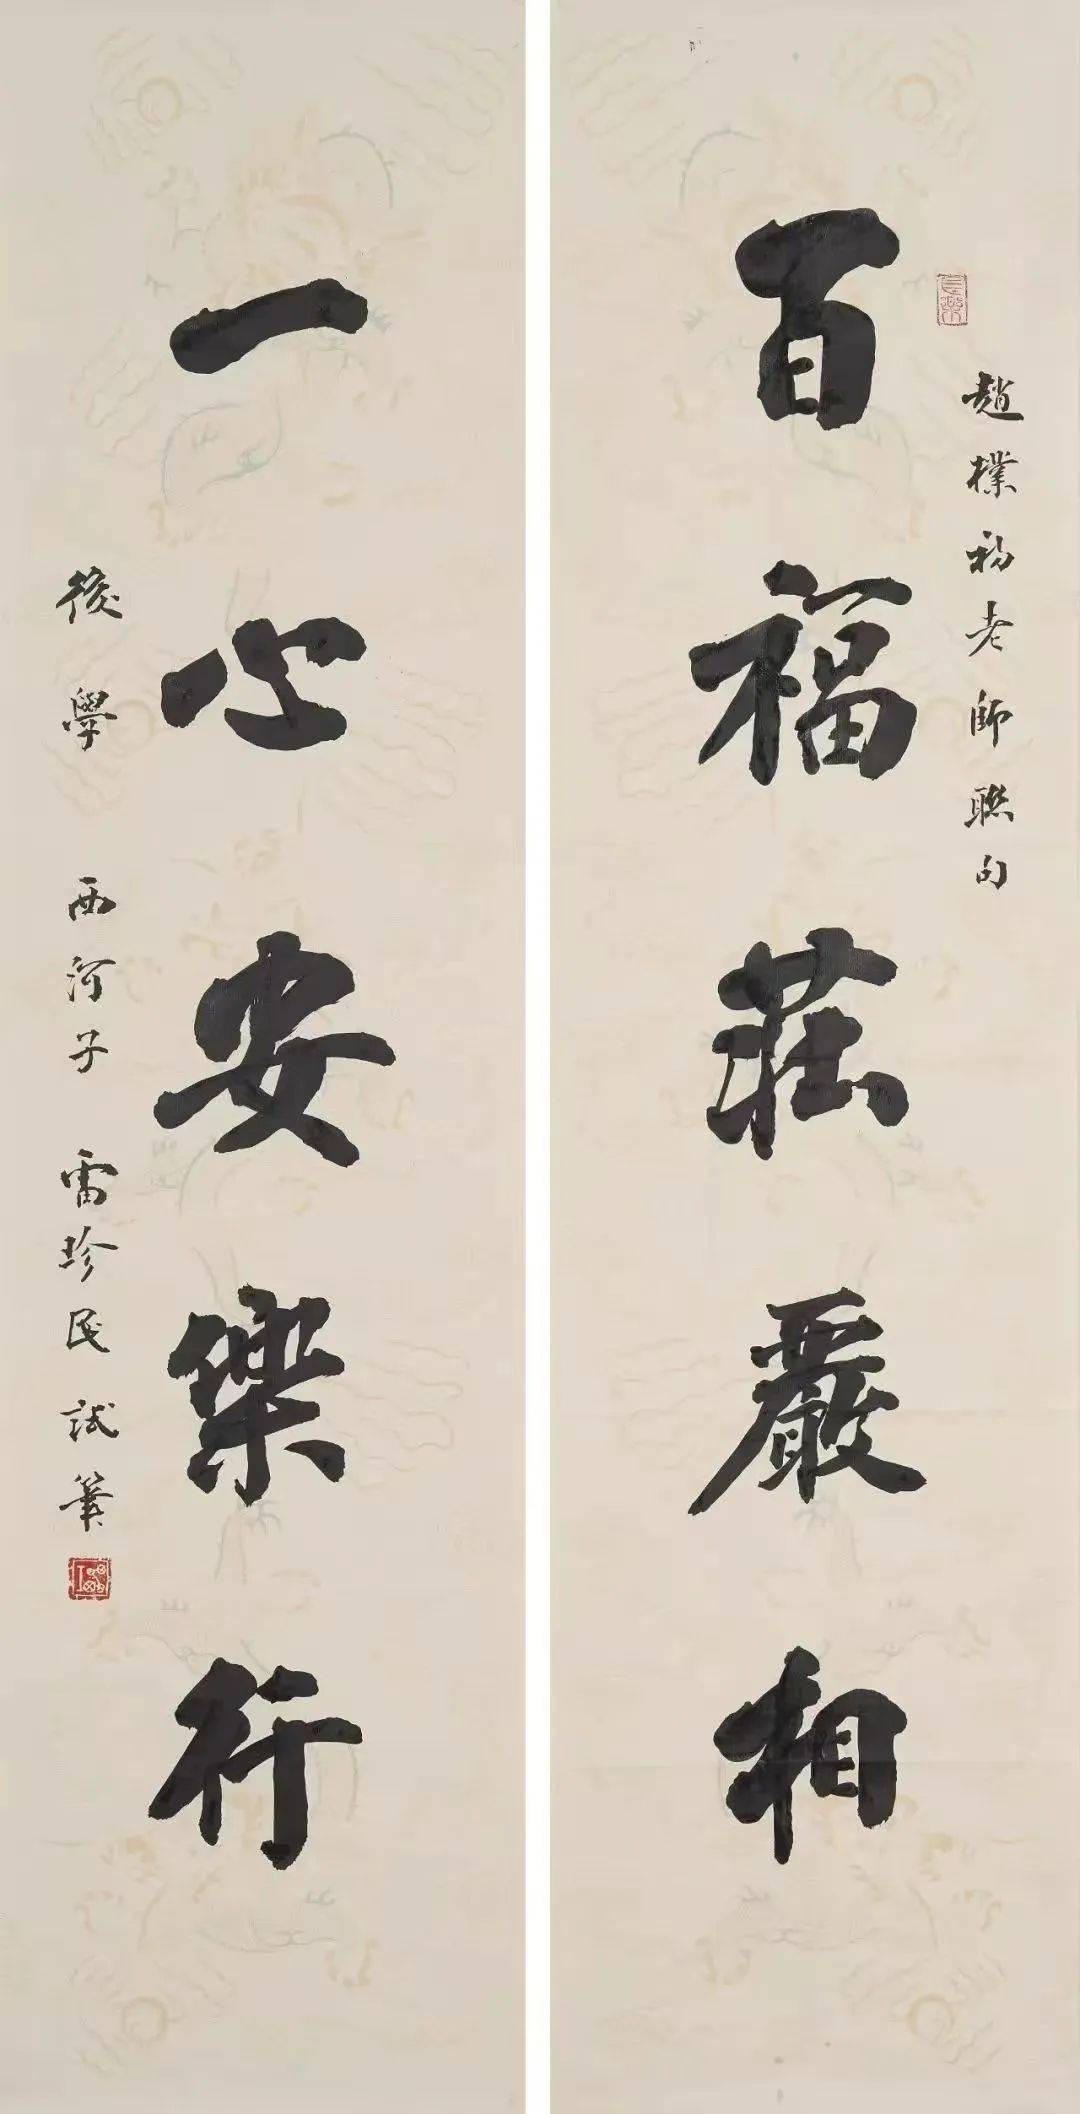 趙樸初老師聯句
百福莊嚴相
一心安樂行
後學 西河子 雷珍民 試筆
長樂